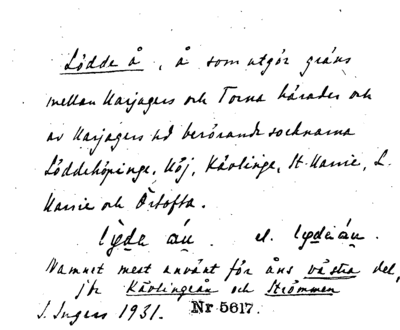 Lödde å, å som utgör gräns
mellan Harjagers och Torna härader och
av Harjagers hd berörande socknarna
Löddeköpinge, Hög, Kävlinge, St. Harrie, L.
Harrie och Örtofta.
lẙde áu. el. lydeáu.
Namnet mest använt för åns västra del,
jfr Kävlingeån och Strömmen
I. Ingers 1931. Nr 5617.